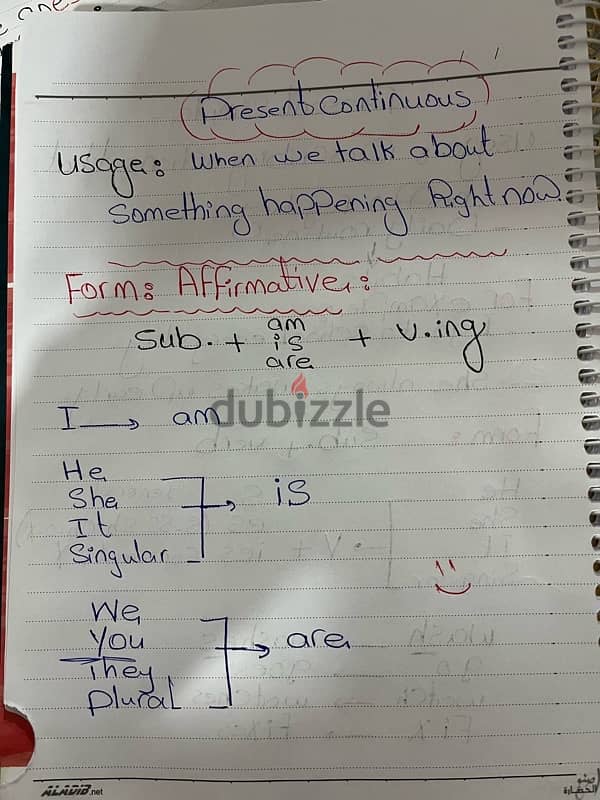 Present Continuous
Usage: When we talk about
Something happening Right now.
Form: Affirmative:
Sub. + am + v.ing
is
are
dubizzle
I → am
He
She
It
Singular
is
We
You
They
Plural
are
ALADIB.net